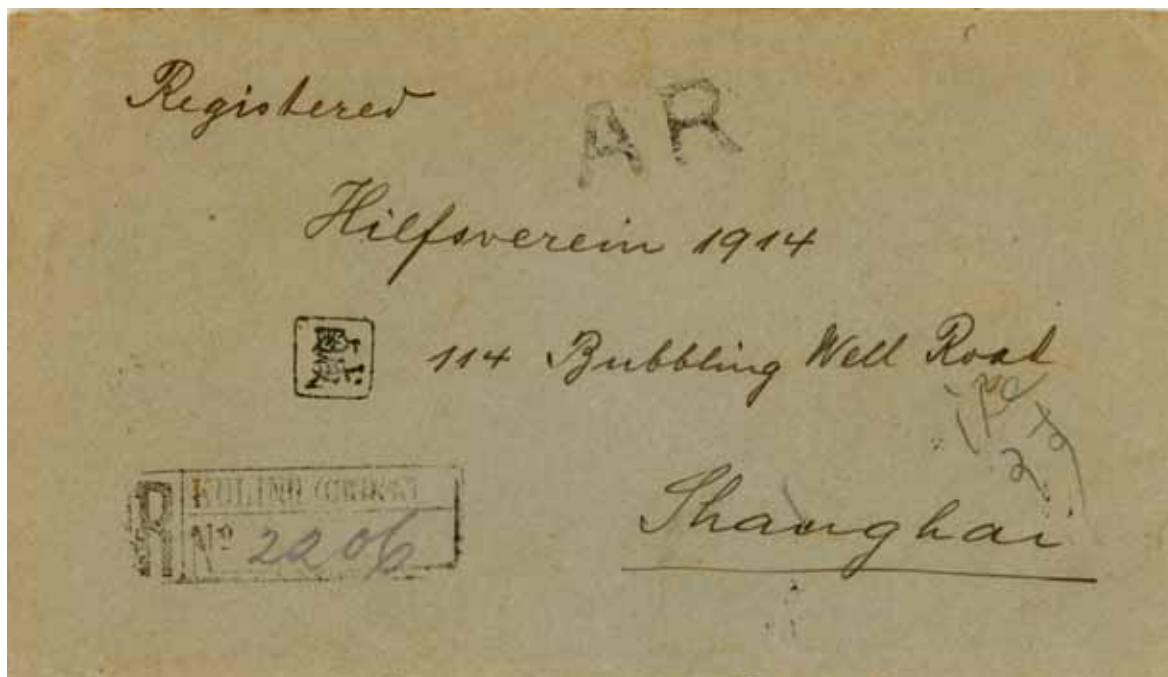 Registered
AR
Hilfsverein 1914
114 Bubbling Well Road
Shanghai
R KULING (CHINA)
Nº 2206